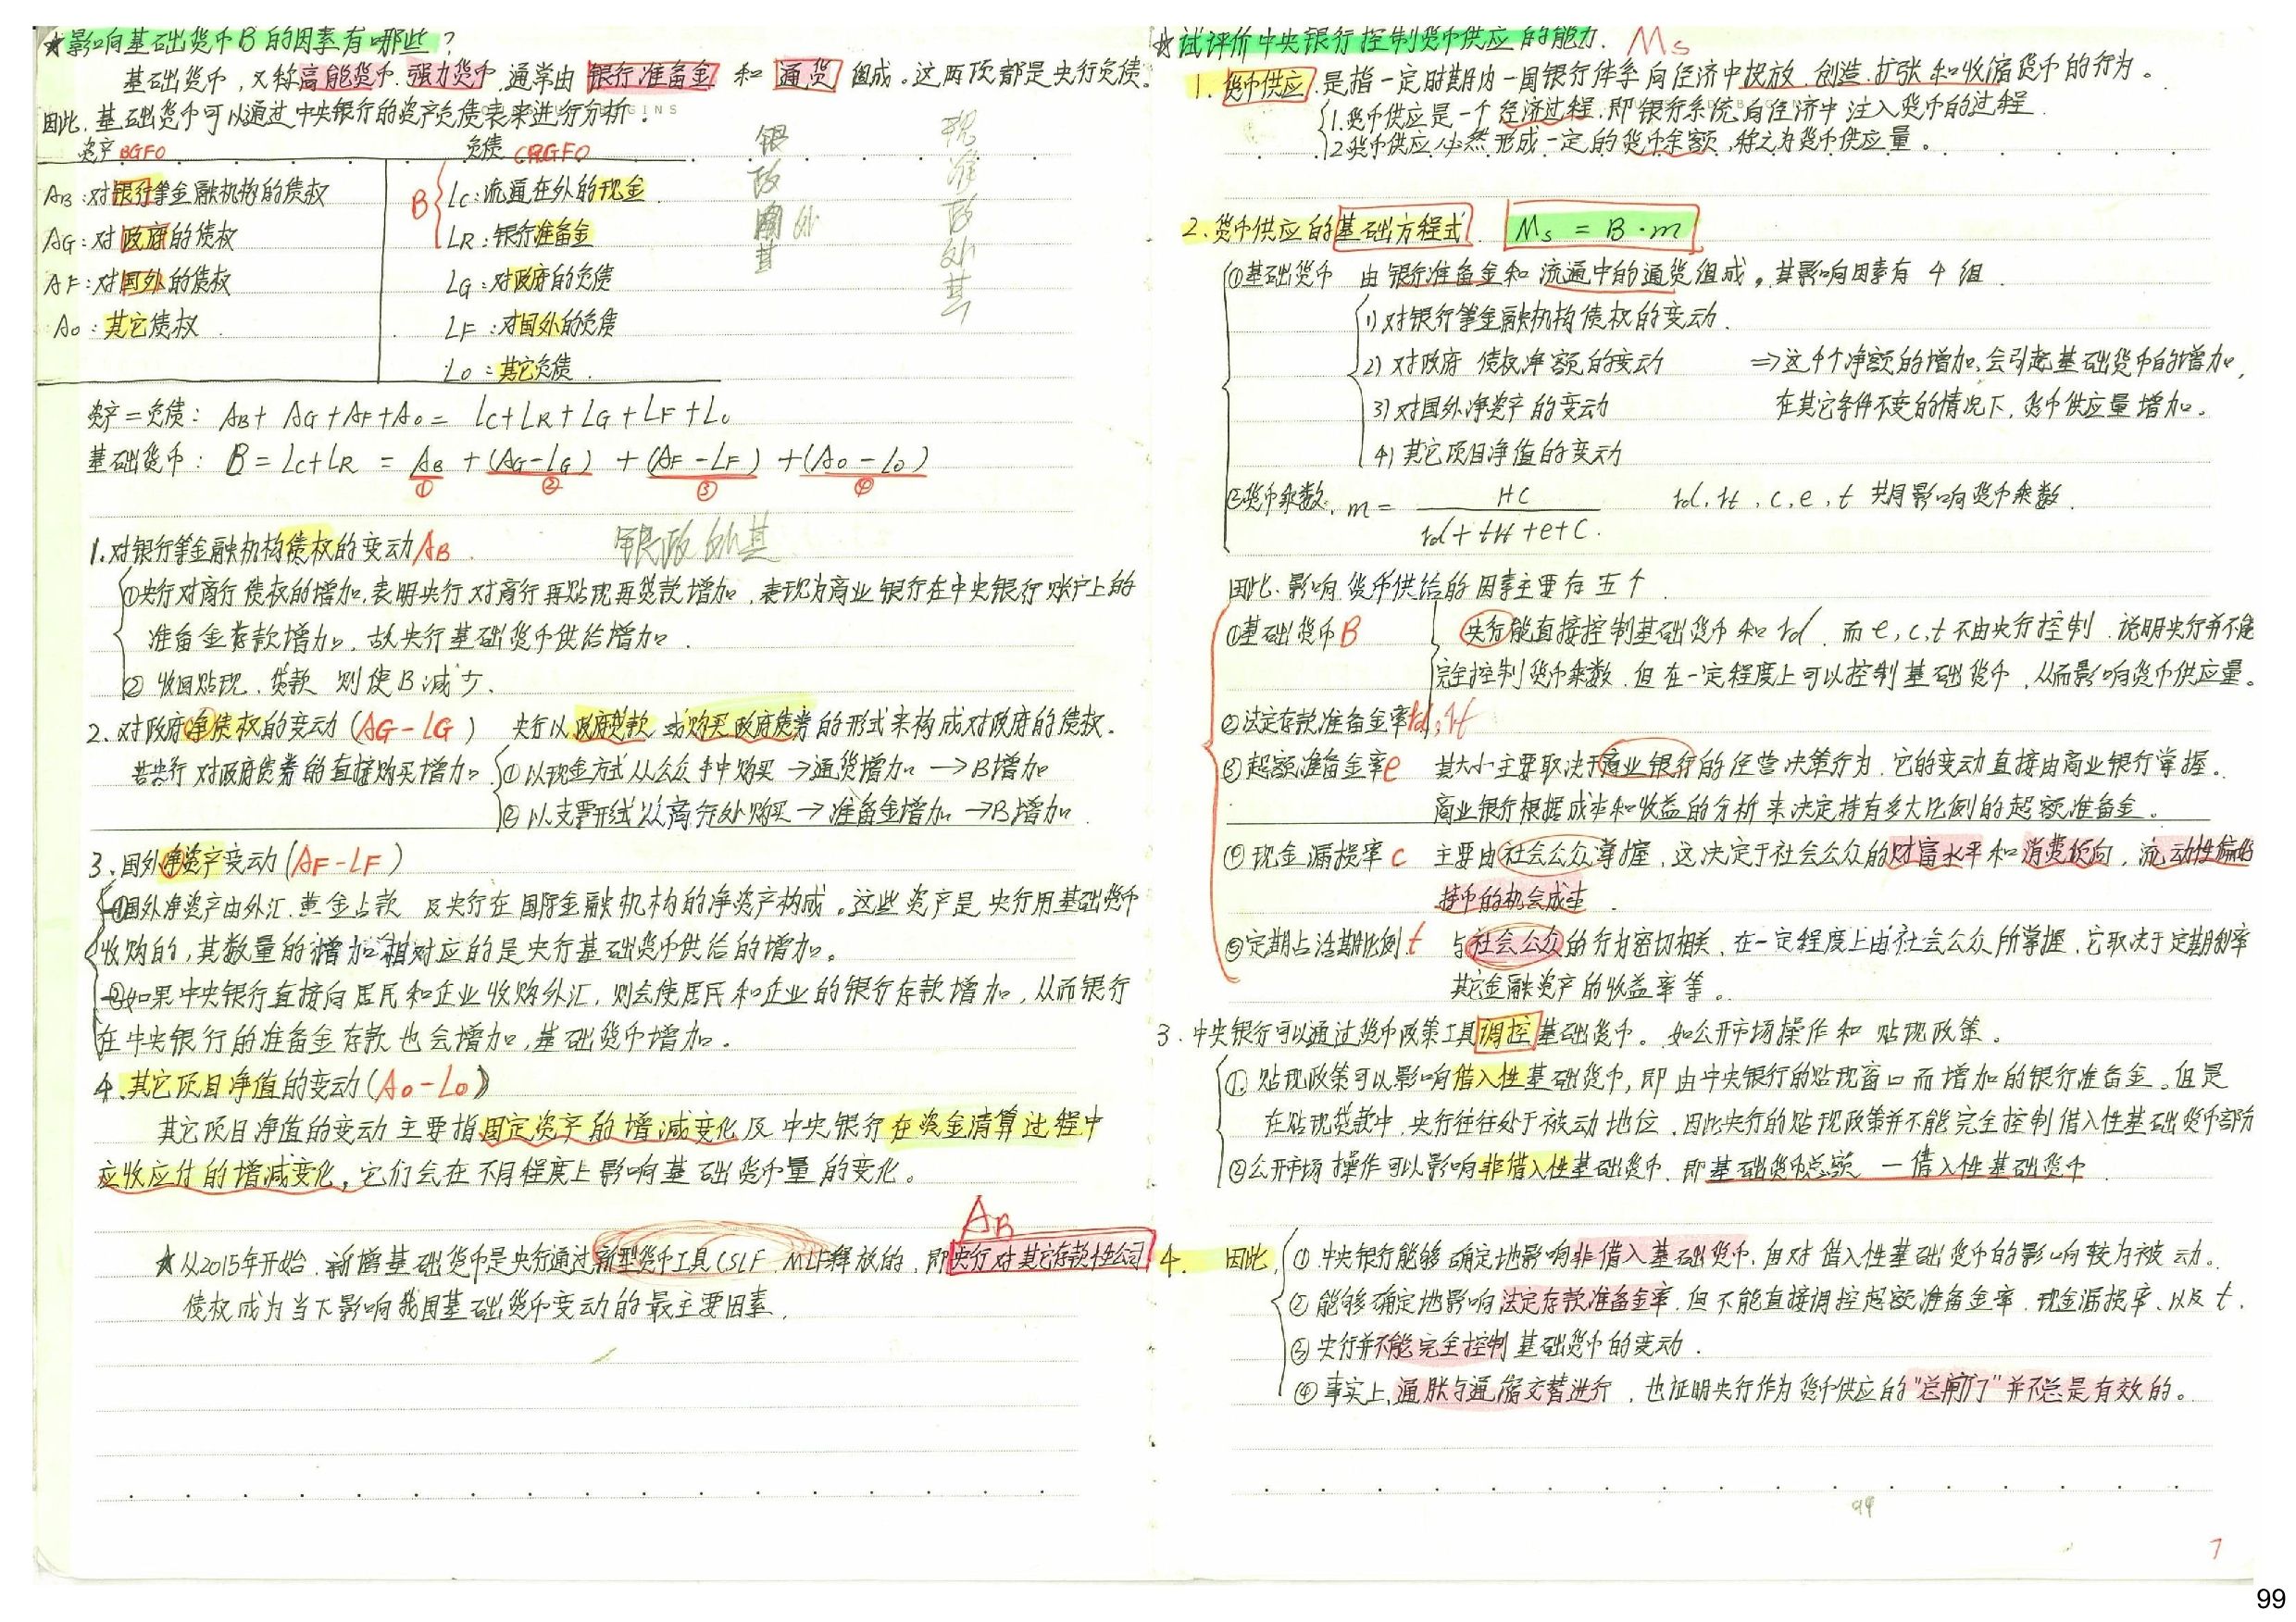 ★影响基础货币B的因素有哪些?
基础货币,又称高能货币、强力货币,通常由 银行准备金 和 通货 组成。这两项都是央行负债。
因此,基础货币可以通过中央银行的资产负债表来进行分析:
资产 BGFO 负债 CRGFO
AB:对银行等金融机构的债权 B LC:流通在外的现金
AG:对政府的债权 LR:银行准备金
AF:对国外的债权 LG:对政府的负债
AO:其它债权 LF:对国外的负债
LO:其它负债
银 政 外 其
现 准 政 外 其
资产=负债: AB+AG+AF+AO=LC+LR+LG+LF+LO
基础货币: B=LC+LR=AB+(AG-LG)+(AF-LF)+(AO-LO)
① ② ③ ④
银政外其
1.对银行等金融机构债权的变动AB
①央行对商行债权的增加,表明央行对商行再贴现再贷款增加,表现为商业银行在中央银行账户上的
准备金存款增加,故央行基础货币供给增加.
② 收回贴现、贷款 则使B减少.
2.对政府净债权的变动(AG-LG) 央行以政府贷款或购买政府债券的形式来构成对政府的债权.
若央行对政府债券的直接购买增加 ①以现金方式从公众手中购买→通货增加→B增加
②以支票形式从商行处购买→准备金增加→B增加.
3.国外净资产变动(AF-LF)
①国外净资产由外汇、黄金占款 及央行在国际金融机构的净资产构成。这些资产是央行用基础货币
收购的,其数量的增加相对应的是央行基础货币供给的增加。
②如果中央银行直接向居民和企业收购外汇,则会使居民和企业的银行存款增加,从而银行
在中央银行的准备金存款也会增加,基础货币增加.
4.其它项目净值的变动(AO-LO)
其它项目净值的变动主要指固定资产的增减变化及中央银行在资金清算过程中
应收应付的增减变化,它们会在不同程度上影响基础货币量的变化。
AB
★从2015年开始,新增基础货币是央行通过新型货币工具(SLF、MLF释放的,即央行对其它存款性公司
债权成为当下影响我国基础货币变动的最主要因素.
☆试评价中央银行控制货币供应的能力. MS
1.货币供应,是指一定时期内一国银行体系向经济中投放、创造、扩张和收缩货币的行为。
1.货币供应是一个经济过程,即银行系统向经济中注入货币的过程
2.货币供应必然形成一定的货币余额,称之为货币供应量。
2.货币供应的基础方程式 Ms=B·m
①基础货币 由银行准备金和流通中的通货组成。其影响因素有4组.
1)对银行等金融机构债权的变动.
2)对政府债权净额的变动 ⇒这4个净额的增加,会引起基础货币的增加,
3)对国外净资产的变动 在其它条件不变的情况下,货币供应量增加。
4)其它项目净值的变动
②货币乘数, m= 1+C / rd+trt+e+C. rd,rt,c,e,t 共同影响货币乘数.
因此,影响货币供给的因素主要有五个.
①基础货币B 央行能直接控制基础货币和rd,而e,c,t不由央行控制,说明央行并不能
完全控制货币乘数,但在一定程度上可以控制基础货币,从而影响货币供应量。
②法定存款准备金率rd,rt
③超额准备金率e 其大小主要取决于商业银行的经营决策行为,它的变动直接由商业银行掌握.
商业银行根据成本和收益的分析来决定持有多大比例的超额准备金。
④现金漏损率c 主要由社会公众掌握,这决定于社会公众的财富水平和消费倾向,流动性偏好
持币的机会成本.
⑤定期占活期比例t 与社会公众的行为密切相关,在一定程度上由社会公众所掌握,它取决于定期利率
其它金融资产的收益率等。
3.中央银行可以通过货币政策工具调控基础货币。如公开市场操作和贴现政策。
①.贴现政策可以影响借入性基础货币,即由中央银行的贴现窗口而增加的银行准备金。但是
在贴现贷款中,央行往往处于被动地位,因此央行的贴现政策并不能完全控制借入性基础货币部分
②公开市场操作可以影响非借入性基础货币,即基础货币总额-借入性基础货币.
4. 因此,①中央银行能够确定地影响非借入基础货币,但对借入性基础货币的影响较为被动。
②能够确定地影响法定存款准备金率,但不能直接调控超额准备金率、现金漏损率、以及t.
③央行并不能完全控制基础货币的变动.
④事实上,通胀与通缩交替进行,也证明央行作为货币供应的"总闸门"并不总是有效的。
94
7
99